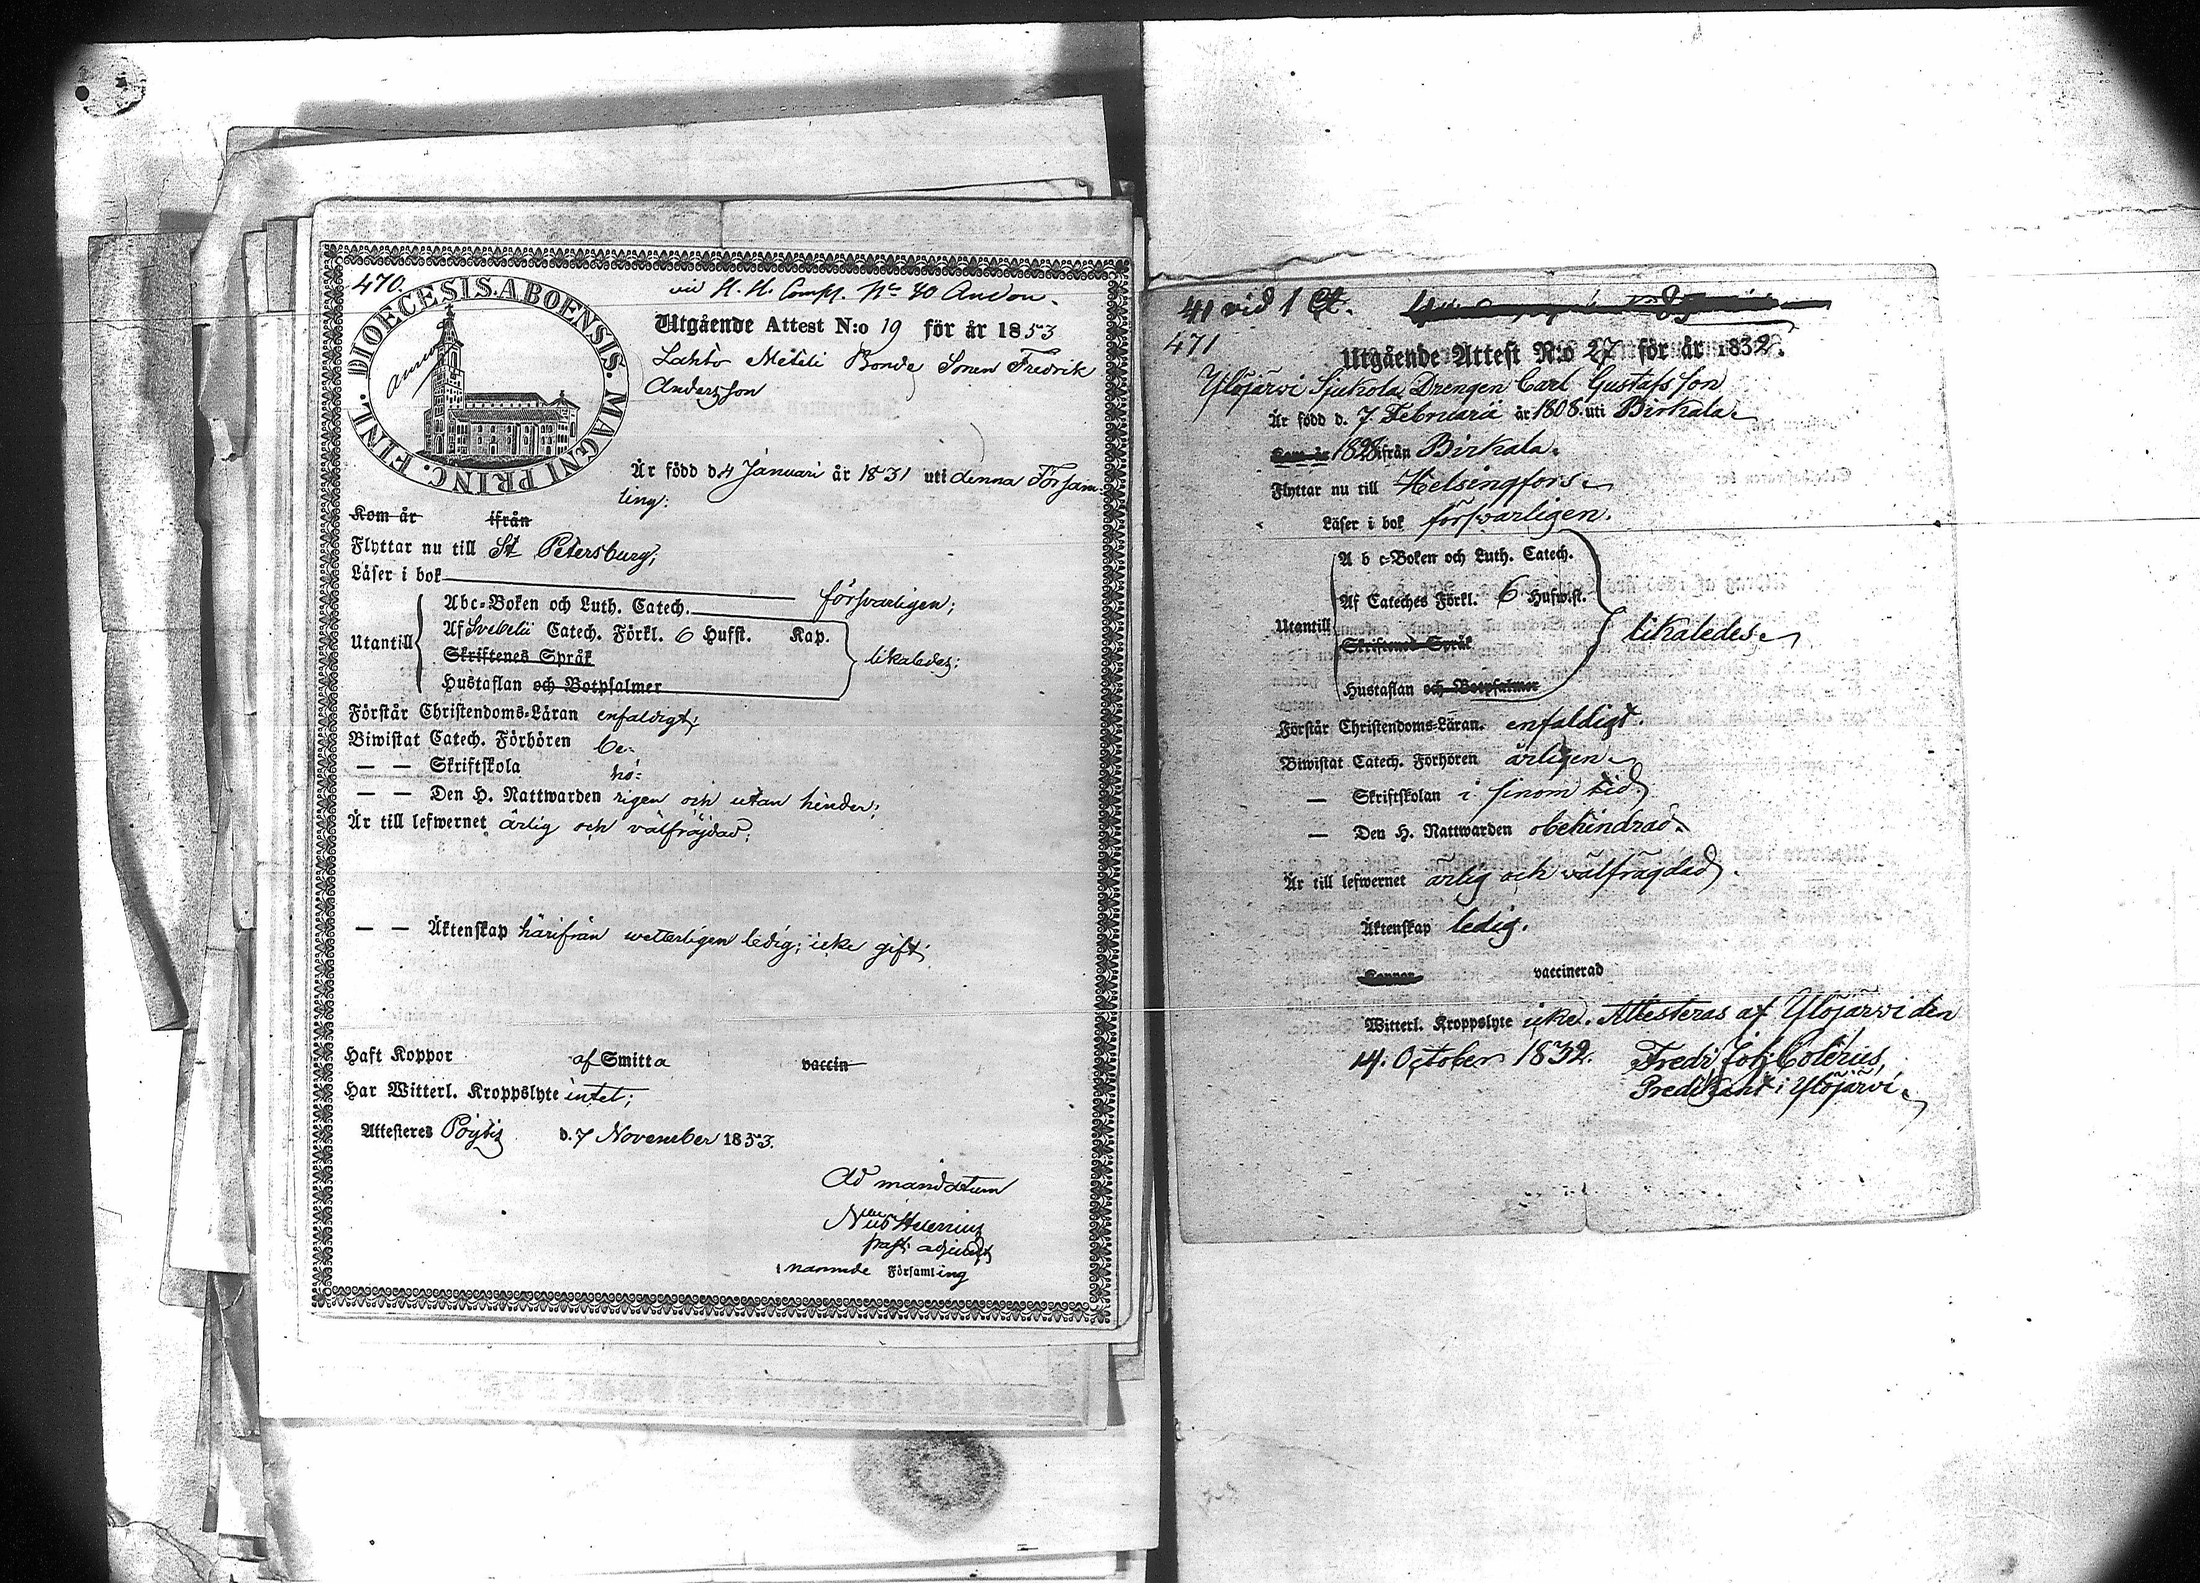 470.
DIOECESIS.ABOENSIS. MAGNI PRINC. FINL.
vid H. H. Comp. No 40 Andon.
Utgående Attest N:o 19 för år 1853
Lahto Meteli Bonde Sonen Fredrik
Andersson
Är född d. 4 Januari år 1831 uti denna Försam-
ling:
Kom år ifrån
Flyttar nu till St Petersburg;
Läser i bok försvarligen;
Abc-Boken och Luth. Catech.
Utantill
Af Svebelii Catech. Förkl. 6 Hufst. Kap.
Skriftenes Språk
likaledes;
Hustaflan och Botpsalmer
Förstår Christendoms-Läran enfaldigt;
Biwistat Catech. Förhören be-
— — Skriftskola hö-
— — Den H. Nattwarden rigen och utan hinder;
Är till lefwernet ärlig och välfräjdad;
— — Äktenskap härifrån wetterligen ledig; icke gift;
Haft Koppor af Smitta vaccin
Har Witterl. Kroppslyte intet;
Attesteres Pöytis d. 7 November 1853.
Ad mandatum
Nils Helenius
past. adjunct
i nämnde Församling
41 vid 1 Ct.
471
Utgående Attest N:o 27 för år 1832.
Ylöjärvi Sjukola Drengen Carl Gustafsson
Är född d. 7 Februarii år 1808 uti Birkala
Kom år 1828 ifrån Birkala.
Flyttar nu till Helsingfors
Läser i bok försvarligen.
A b c-Boken och Luth. Catech.
Af Cateches Förkl. 6 Hufwst.
Utantill
likaledes
Skriftenes Språk
Hustaflan och Botpsalmer
Förstår Christendoms-Läran. enfaldigt.
Biwistat Catech. Förhören ärligen
— Skriftskolan i sinom tid
— Den H. Nattwarden obehindrad
Är till lefwernet ärlig och välfrägdad.
Äktenskap ledig.
Koppor vaccinerad
Witterl. Kroppslyte icke. Attesteras af Ylöjärvi den
14. October 1832. Fredr. Joh. Colerus,
Predikant i Ylöjärvi